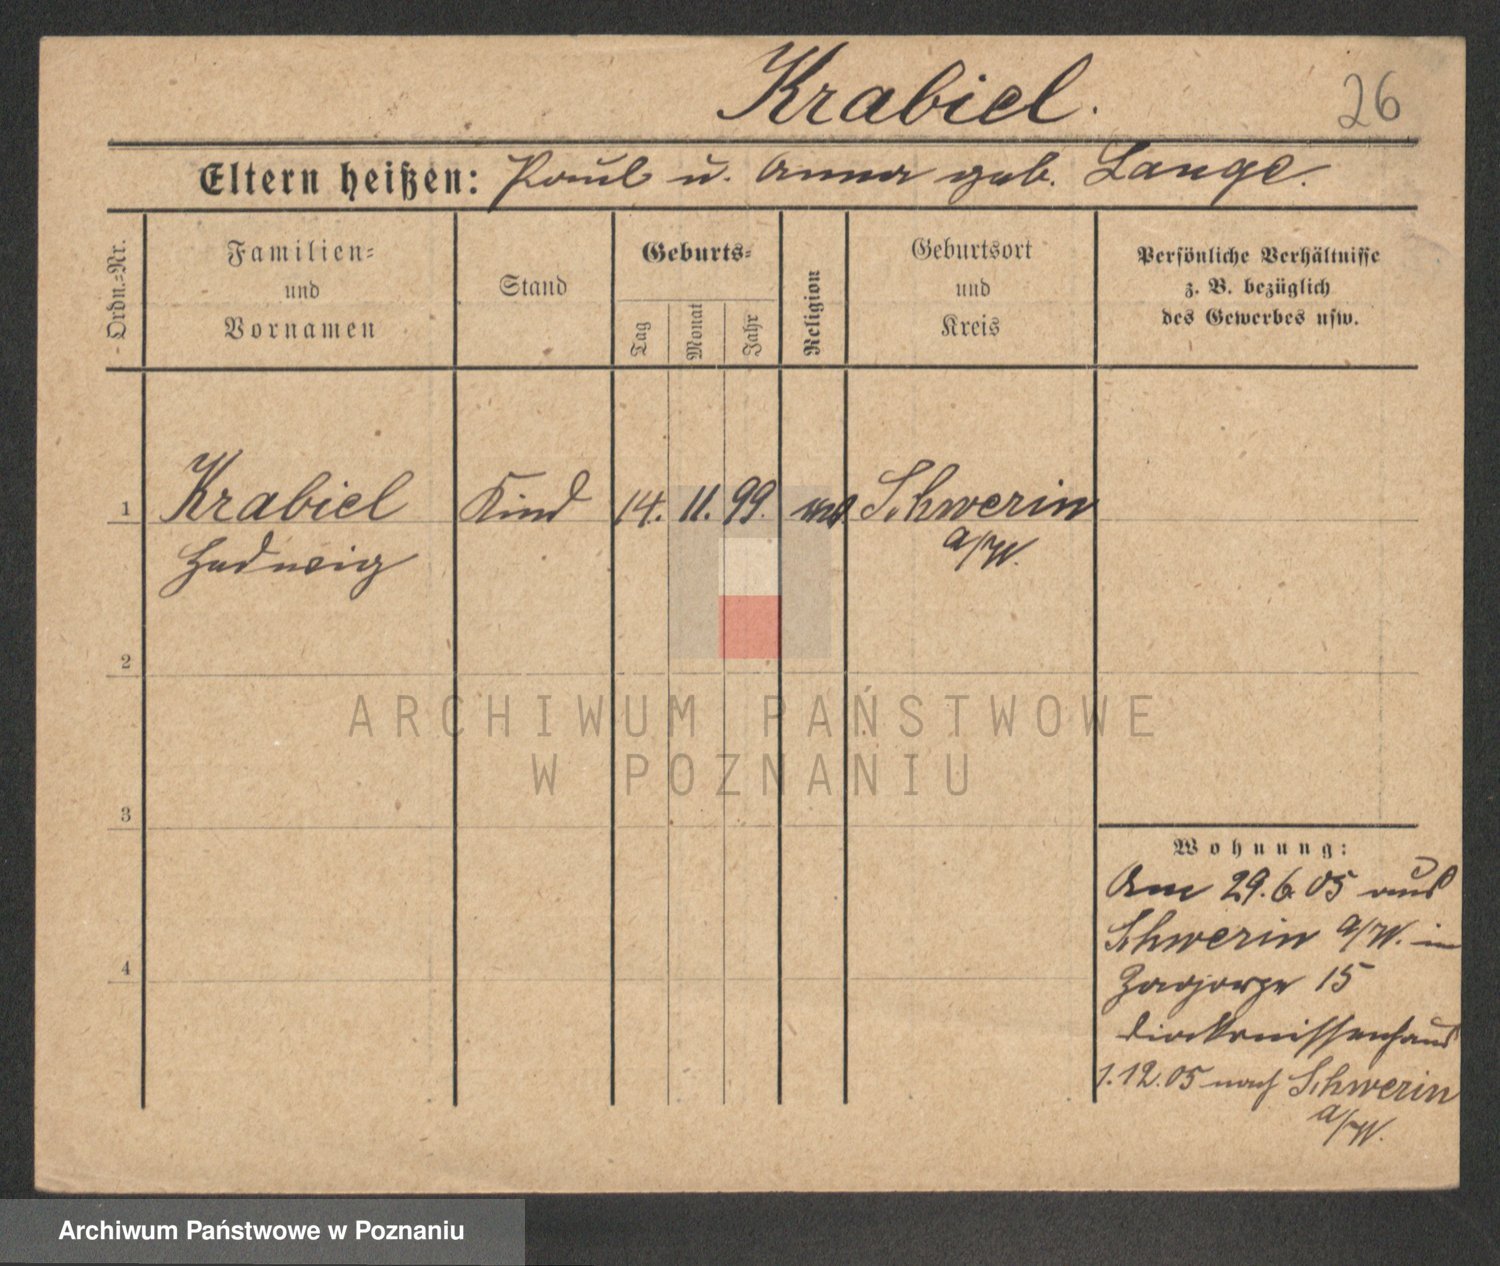 Krabiel. 26
Eltern heißen: Paul u. Anna geb. Lange.
Ordn.-Nr.
Familien-
und
Vornamen
Stand
Geburts-
Tag
Monat
Jahr
Religion
Geburtsort
und
Kreis
Persönliche Verhältnisse
z. B. bezüglich
des Gewerbes usw.
1 Krabiel Kind 14. 11. 99. Schwerin
Hedwig a/W.
2
3
4
ARCHIWUM PAŃSTWOWE
W POZNANIU
Wohnung:
Am 29.6.05 aus
Schwerin a/W. in
Zagorze 15
Diakonissenhaus
1.12.05 nach Schwerin
a/W.
Archiwum Państwowe w Poznaniu